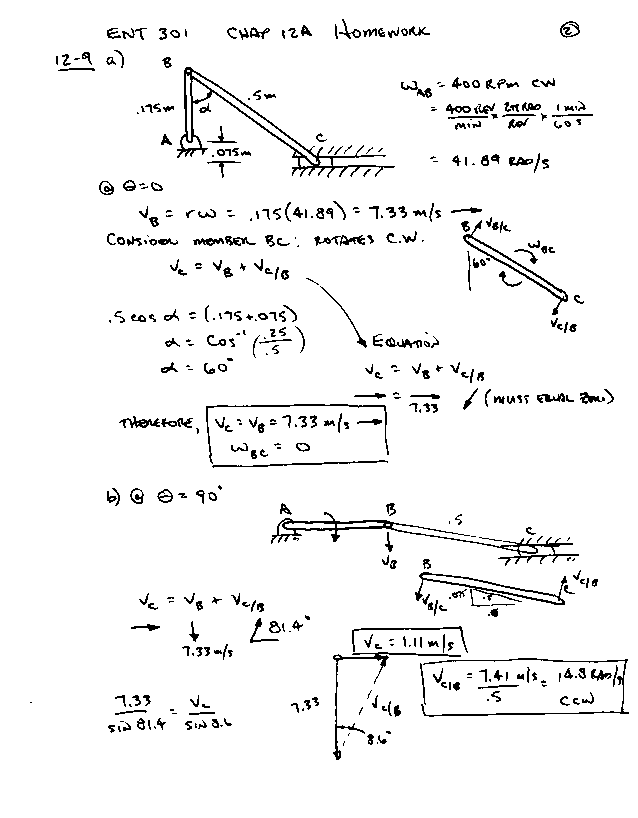 ENT 301 CHAP 12A HOMEWORK ②
12-9 a) B
.175m α .5m
A .075m C
ω_AB = 400 RPM CW
= 400 REV/MIN × 2π RAD/REV × 1 MIN/60 S
= 41.89 RAD/S
@ θ=0
V_B = rω = .175(41.89) = 7.33 m/s →
CONSIDER MEMBER BC: ROTATES C.W.
V_C = V_B + V_C/B
B V_B/C
60° ω_BC
C
V_C/B
.5 cos α = (.175+.075)
α = Cos⁻¹ (.25/.5)
α = 60°
EQUATION
V_C = V_B + V_C/B
→ = → 7.33 ↙ (MUST EQUAL ZERO)
THEREFORE, V_C = V_B = 7.33 m/s →
ω_BC = 0
b) @ θ = 90°
A B .5 C
V_B
B V_C/B
V_B/C .075 .5 C
V_C = V_B + V_C/B
→ ↓ 81.4°
7.33 m/s
V_C = 1.11 m/s
V_C/B = 7.41 m/s/.5 = 14.8 RAD/S
CCW
7.33/sin 81.4 = V_C/sin 8.6
7.33 V_C/B
8.6°